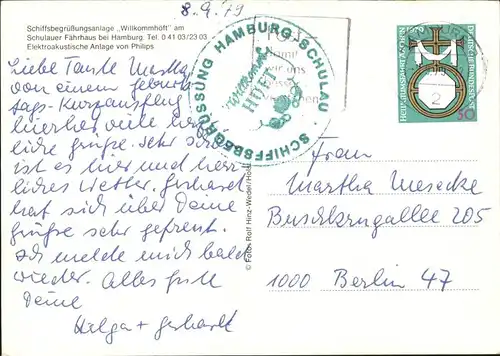 8.9.79
Schiffsbegrüßungsanlage „Willkommhöft" am
Schulauer Fährhaus bei Hamburg. Tel. 0 41 03/23 03
Elektroakustische Anlage von Philips
SCHIFFSBEGRÜSSUNG HAMBURG-SCHULAU
Willkomm
HÖFT
DEUTSCHE BUNDESPOST
50
2
Liebe Tante Martha,
von einem Geburts-
tags-Kurzausflug
hierher viele herz-
liche Grüße. Sehr schön
ist es hier und herr-
liches Wetter. Gerhard
hat sich über Deine
Grüße sehr gefreut.
Ich melde mich bald
wieder. Alles Gute
Deine
Helga + Gerhard
© Foto: Rolf Hinz-Wedel/Holst.
Frau
Martha Mesecke
Buschkrugallee 205
1000 Berlin 47